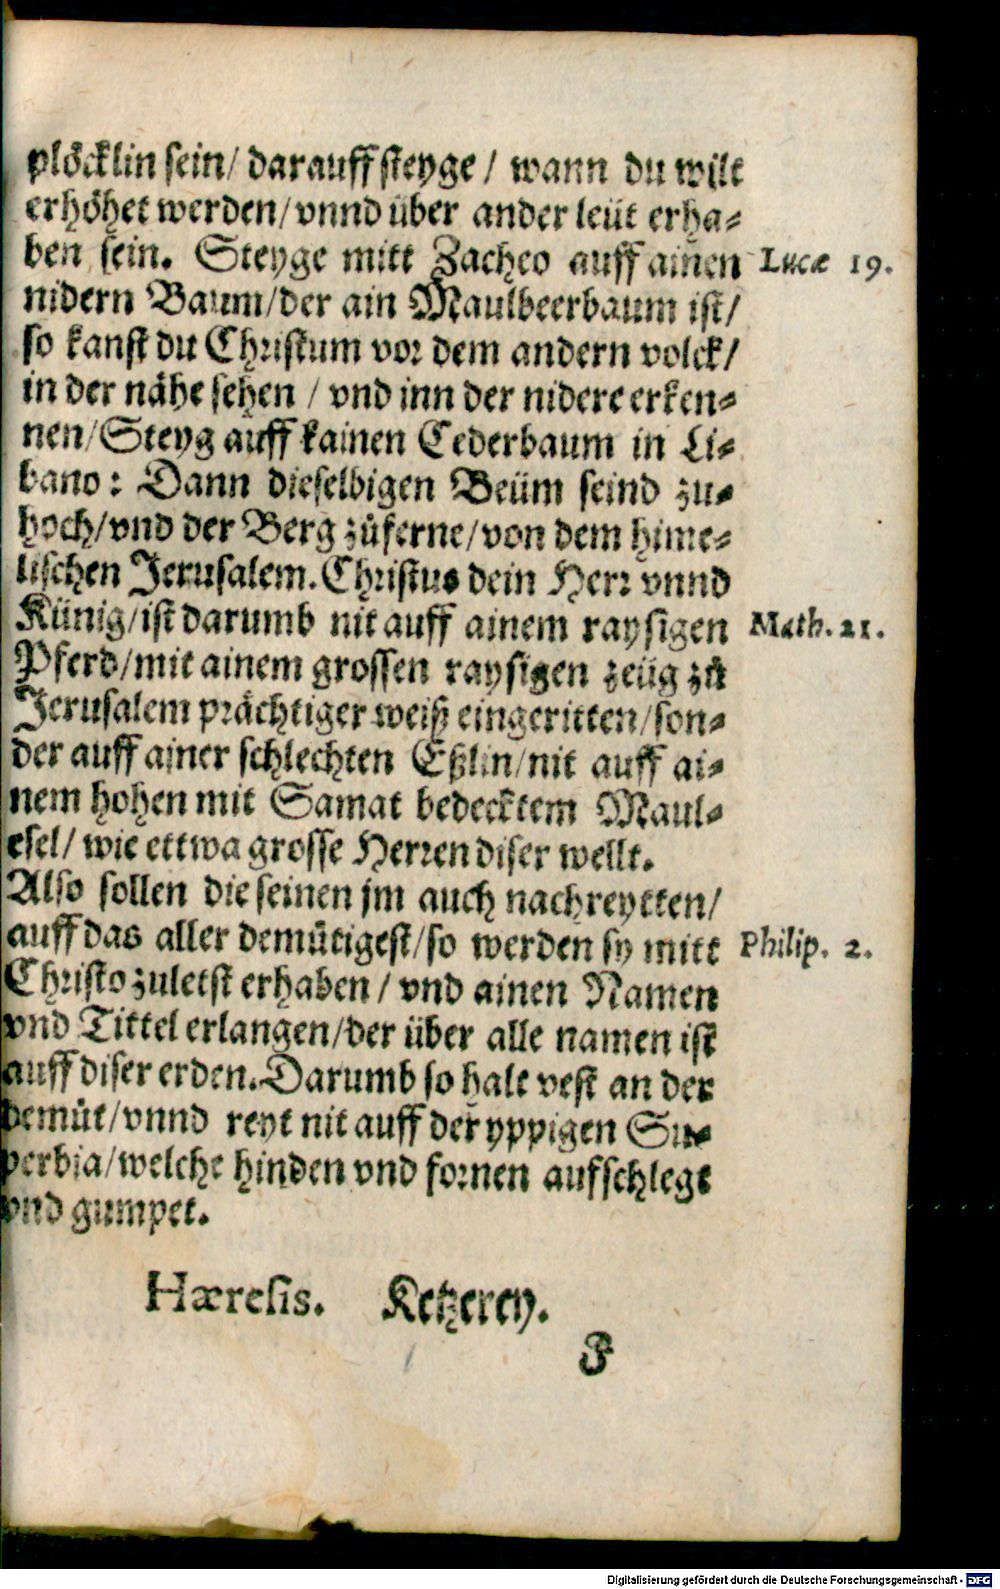 plöcklin sein/ darauff steyge/ wann du wilt
erhöhet werden/ vnnd über ander leüt erha-
ben sein. Steyge mitt Zacheo auff ainen Lucæ 19.
nidern Baum/der ain Maulbeerbaum ist/
so kanst du Christum vor dem andern volck/
in der nähe sehen / vnd inn der nidere erken-
nen/Steyg auff kainen Cederbaum in Li-
bano: Dann dieselbigen Beüm seind zu-
hoch/vnd der Berg zůferne/von dem hime-
lischen Jerusalem. Christus dein Herr vnnd
Künig/ist darumb nit auff ainem raysigen Math. 21.
Pferd/mit ainem grossen raysigen zeüg zů
Jerusalem prächtiger weiß eingeritten/son-
der auff ainer schlechten Eßlin/nit auff ai-
nem hohen mit Samat bedecktem Maul-
esel/ wie ettwa grosse Herren diser wellt.
Also sollen die seinen jm auch nachreytten/
auff das aller demůtigest/so werden sy mitt Philip. 2.
Christo zuletst erhaben / vnd ainen Namen
vnd Tittel erlangen/der über alle namen ist
auff diser erden. Darumb so halt vest an der
demůt/vnnd reyt nit auff der yppigen Su-
perbia/welche hinden vnd fornen aufschlegt
vnd gumpet.
Hæresis. Ketzerey.
J
Digitalisierung gefördert durch die Deutsche Forschungsgemeinschaft - DFG